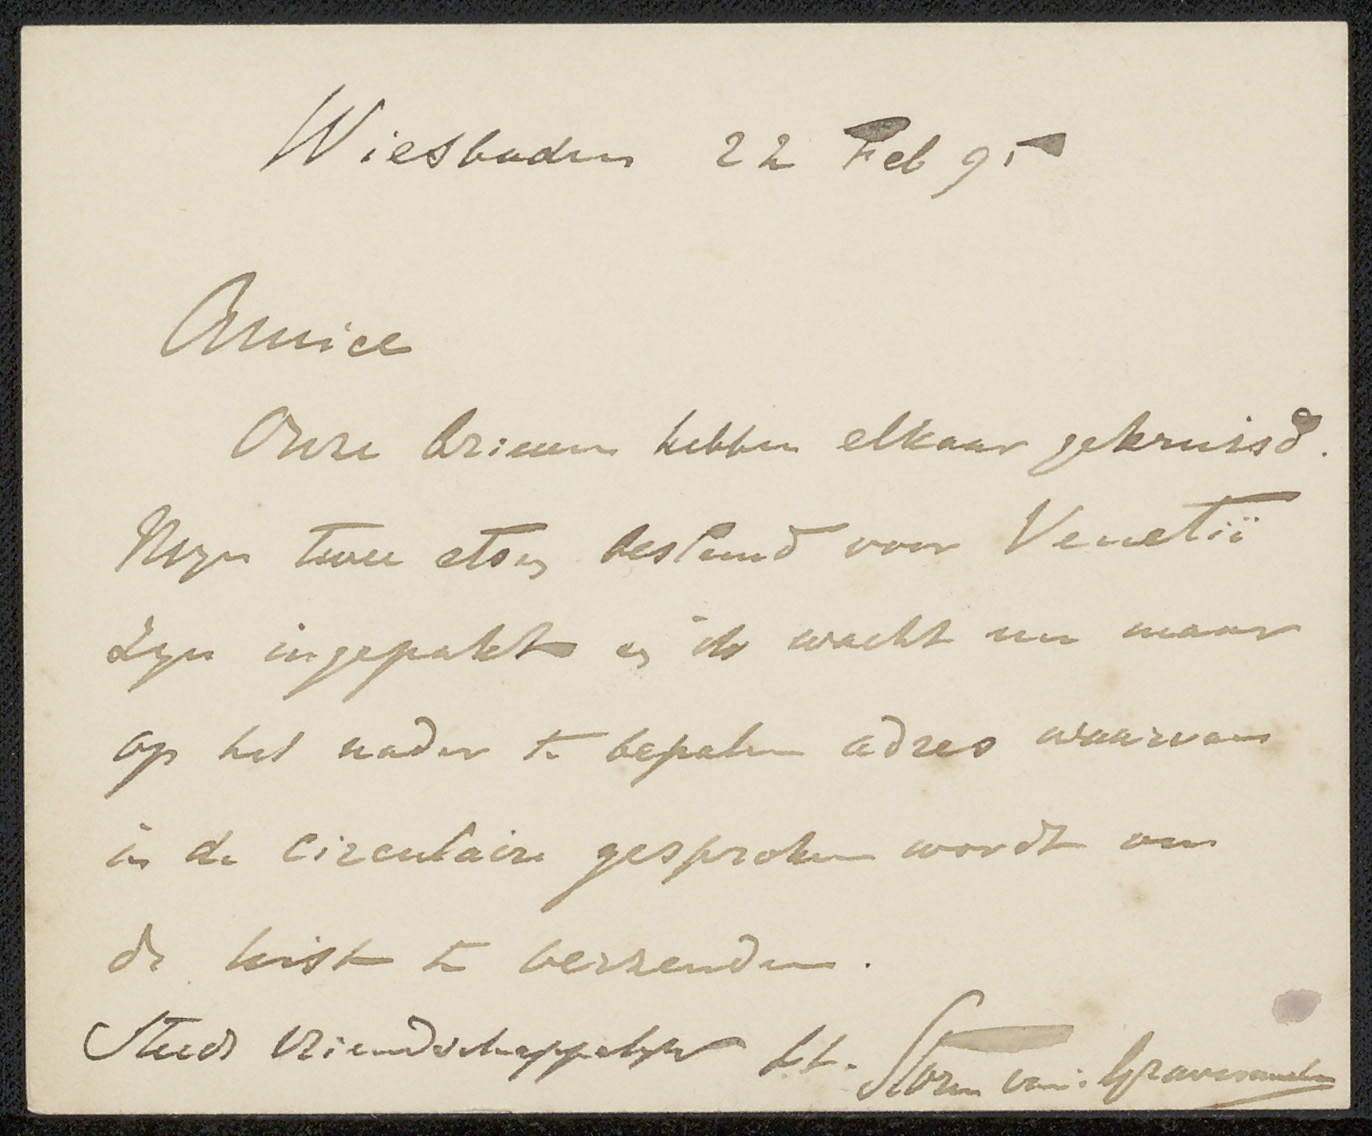 Wiesbaden 22 Feb 95
Amice
Onze brieven hebben elkaar gekruisd.
Mijn twee etsen bestemd voor Venetië
zijn ingepakt en ik wacht nu maar
op het nader te bepalen adres waarvan
in de circulaire gesproken wordt om
de kist te verzenden.
Steeds vriendschappelijk tt. Storm van 's Gravesande